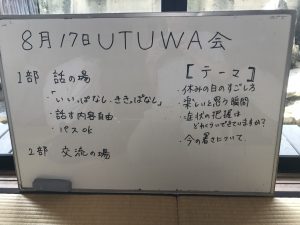 8月17日 UTUWA会
1部 話の場
「いいっぱなし・ききっぱなし」
・話す内容自由
・パスok
2部 交流の場
[テーマ]
・休みの日のすごし方
・楽しいと思う瞬間
・症状の把握は
どれくらいできていますか?
・今の暑さについて